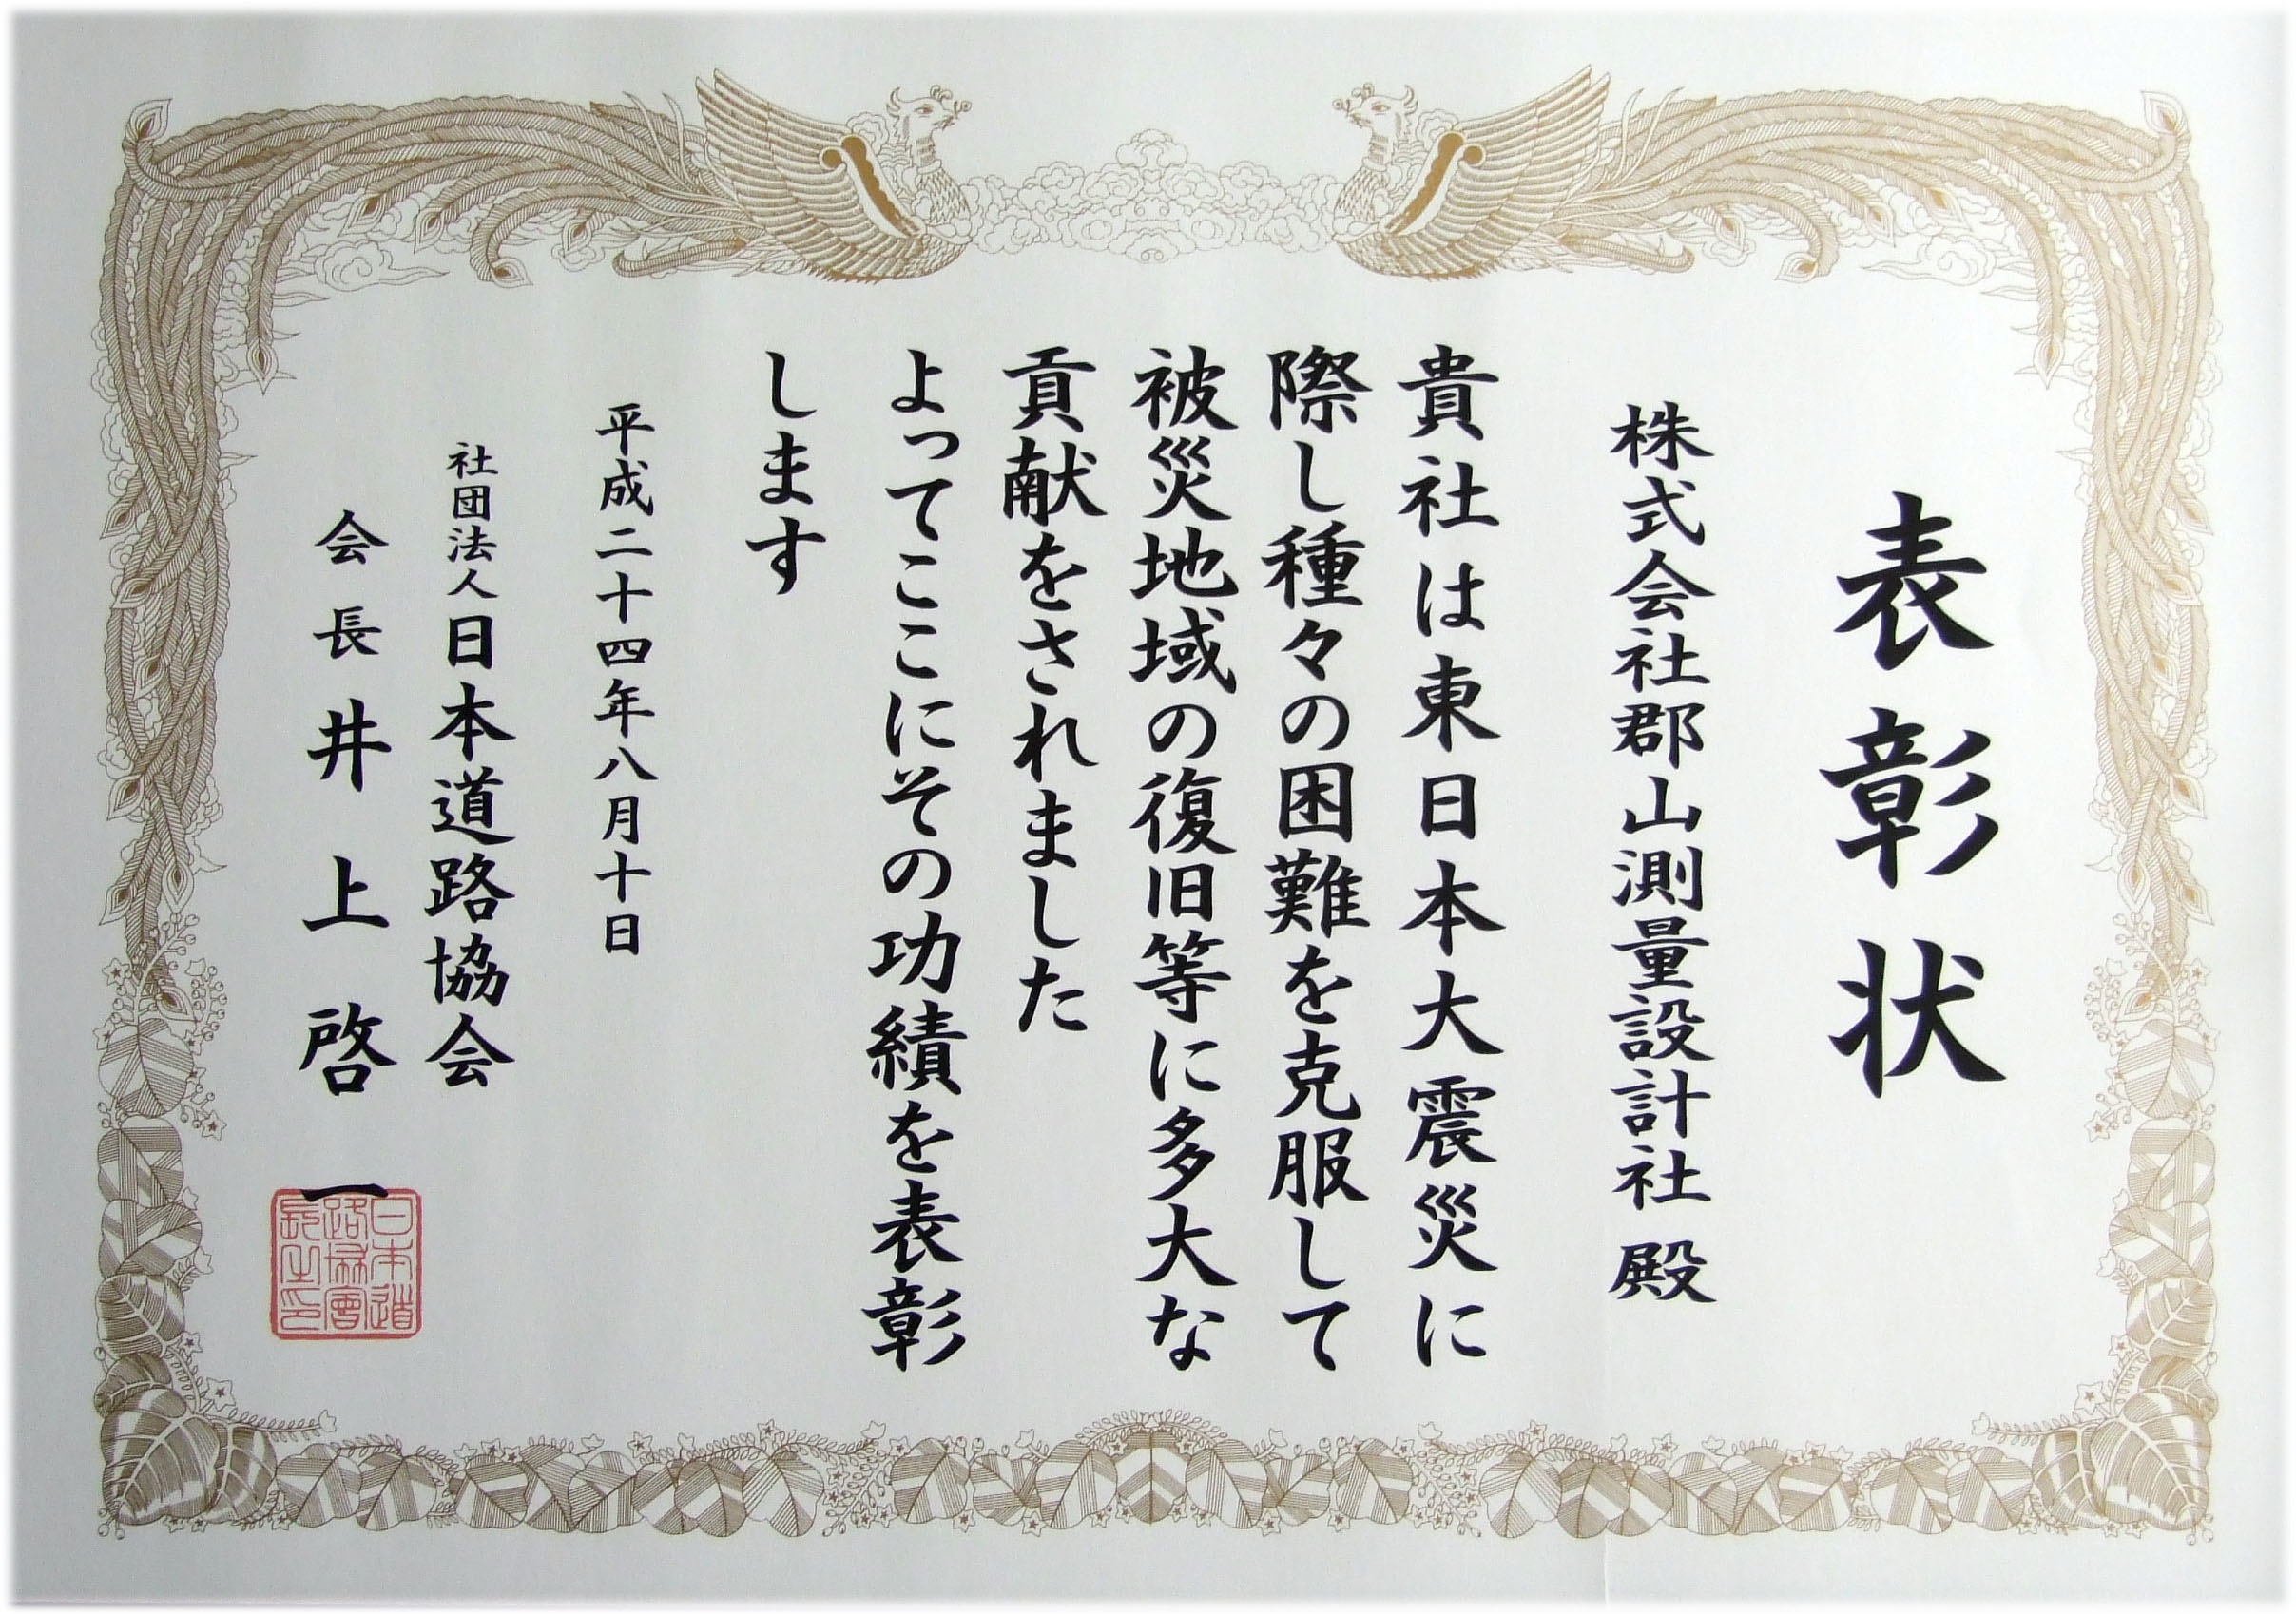 表彰状
株式会社郡山測量設計社 殿
貴社は東日本大震災に
際し種々の困難を克服して
被災地域の復旧等に多大な
貢献をされました
よってここにその功績を表彰
します
平成二十四年八月十日
社団法人日本道路協会
会長井上啓一
日本道
路協會
長之印